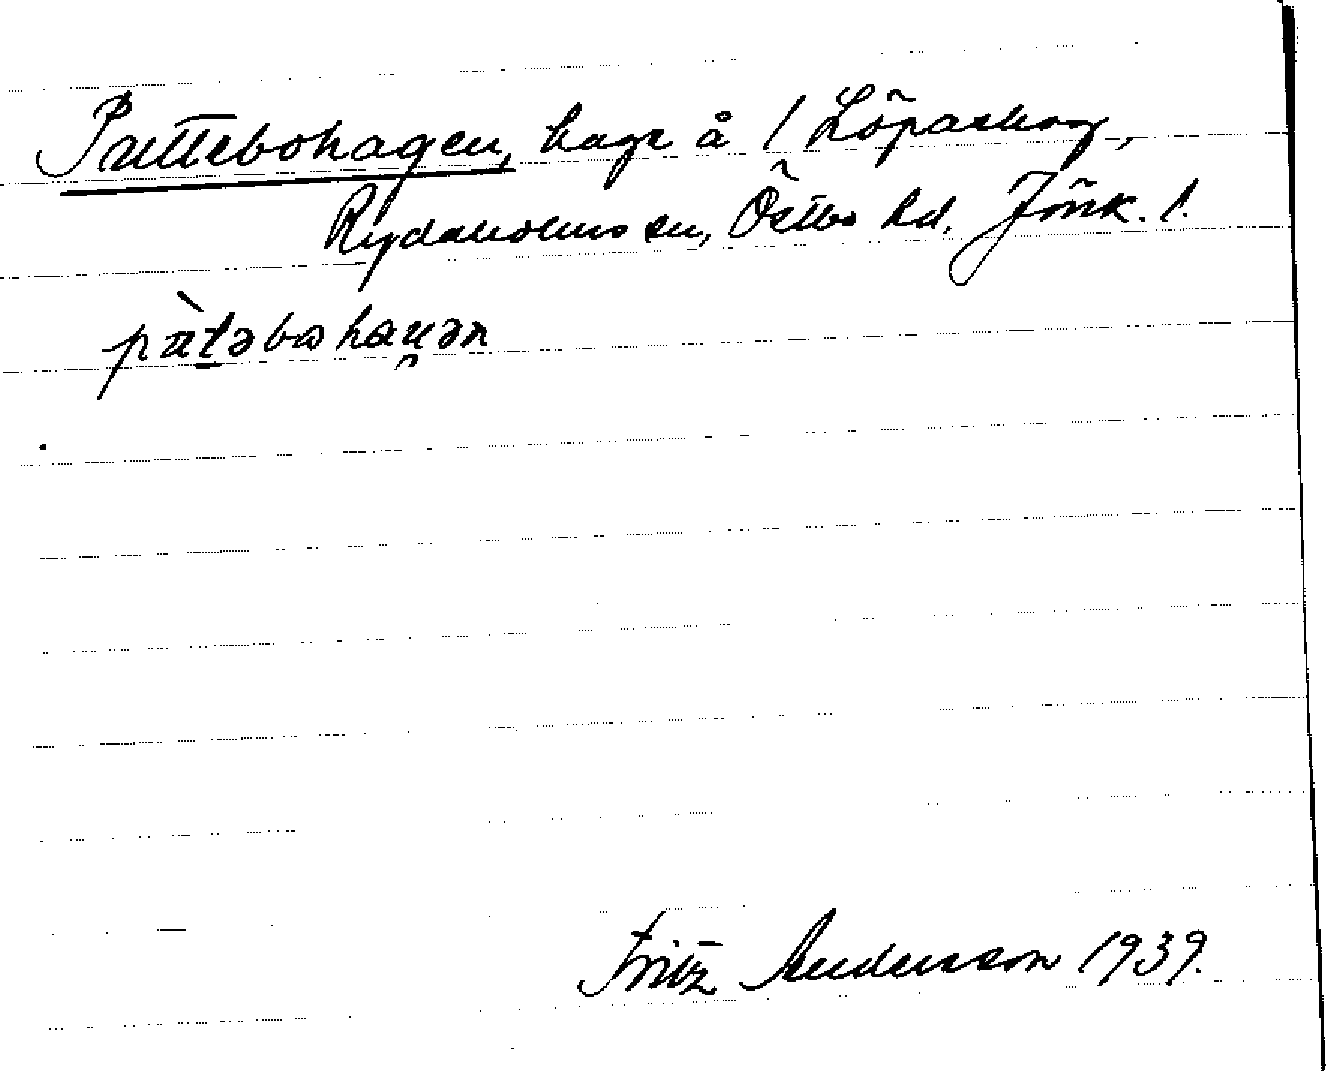 Pattebohagen, hage å 1 Löpaskog,
Rydaholms sn, Östbo hd. Jönk. l.
pàt̲əbohaɥən
Fritz Andersson 1939.